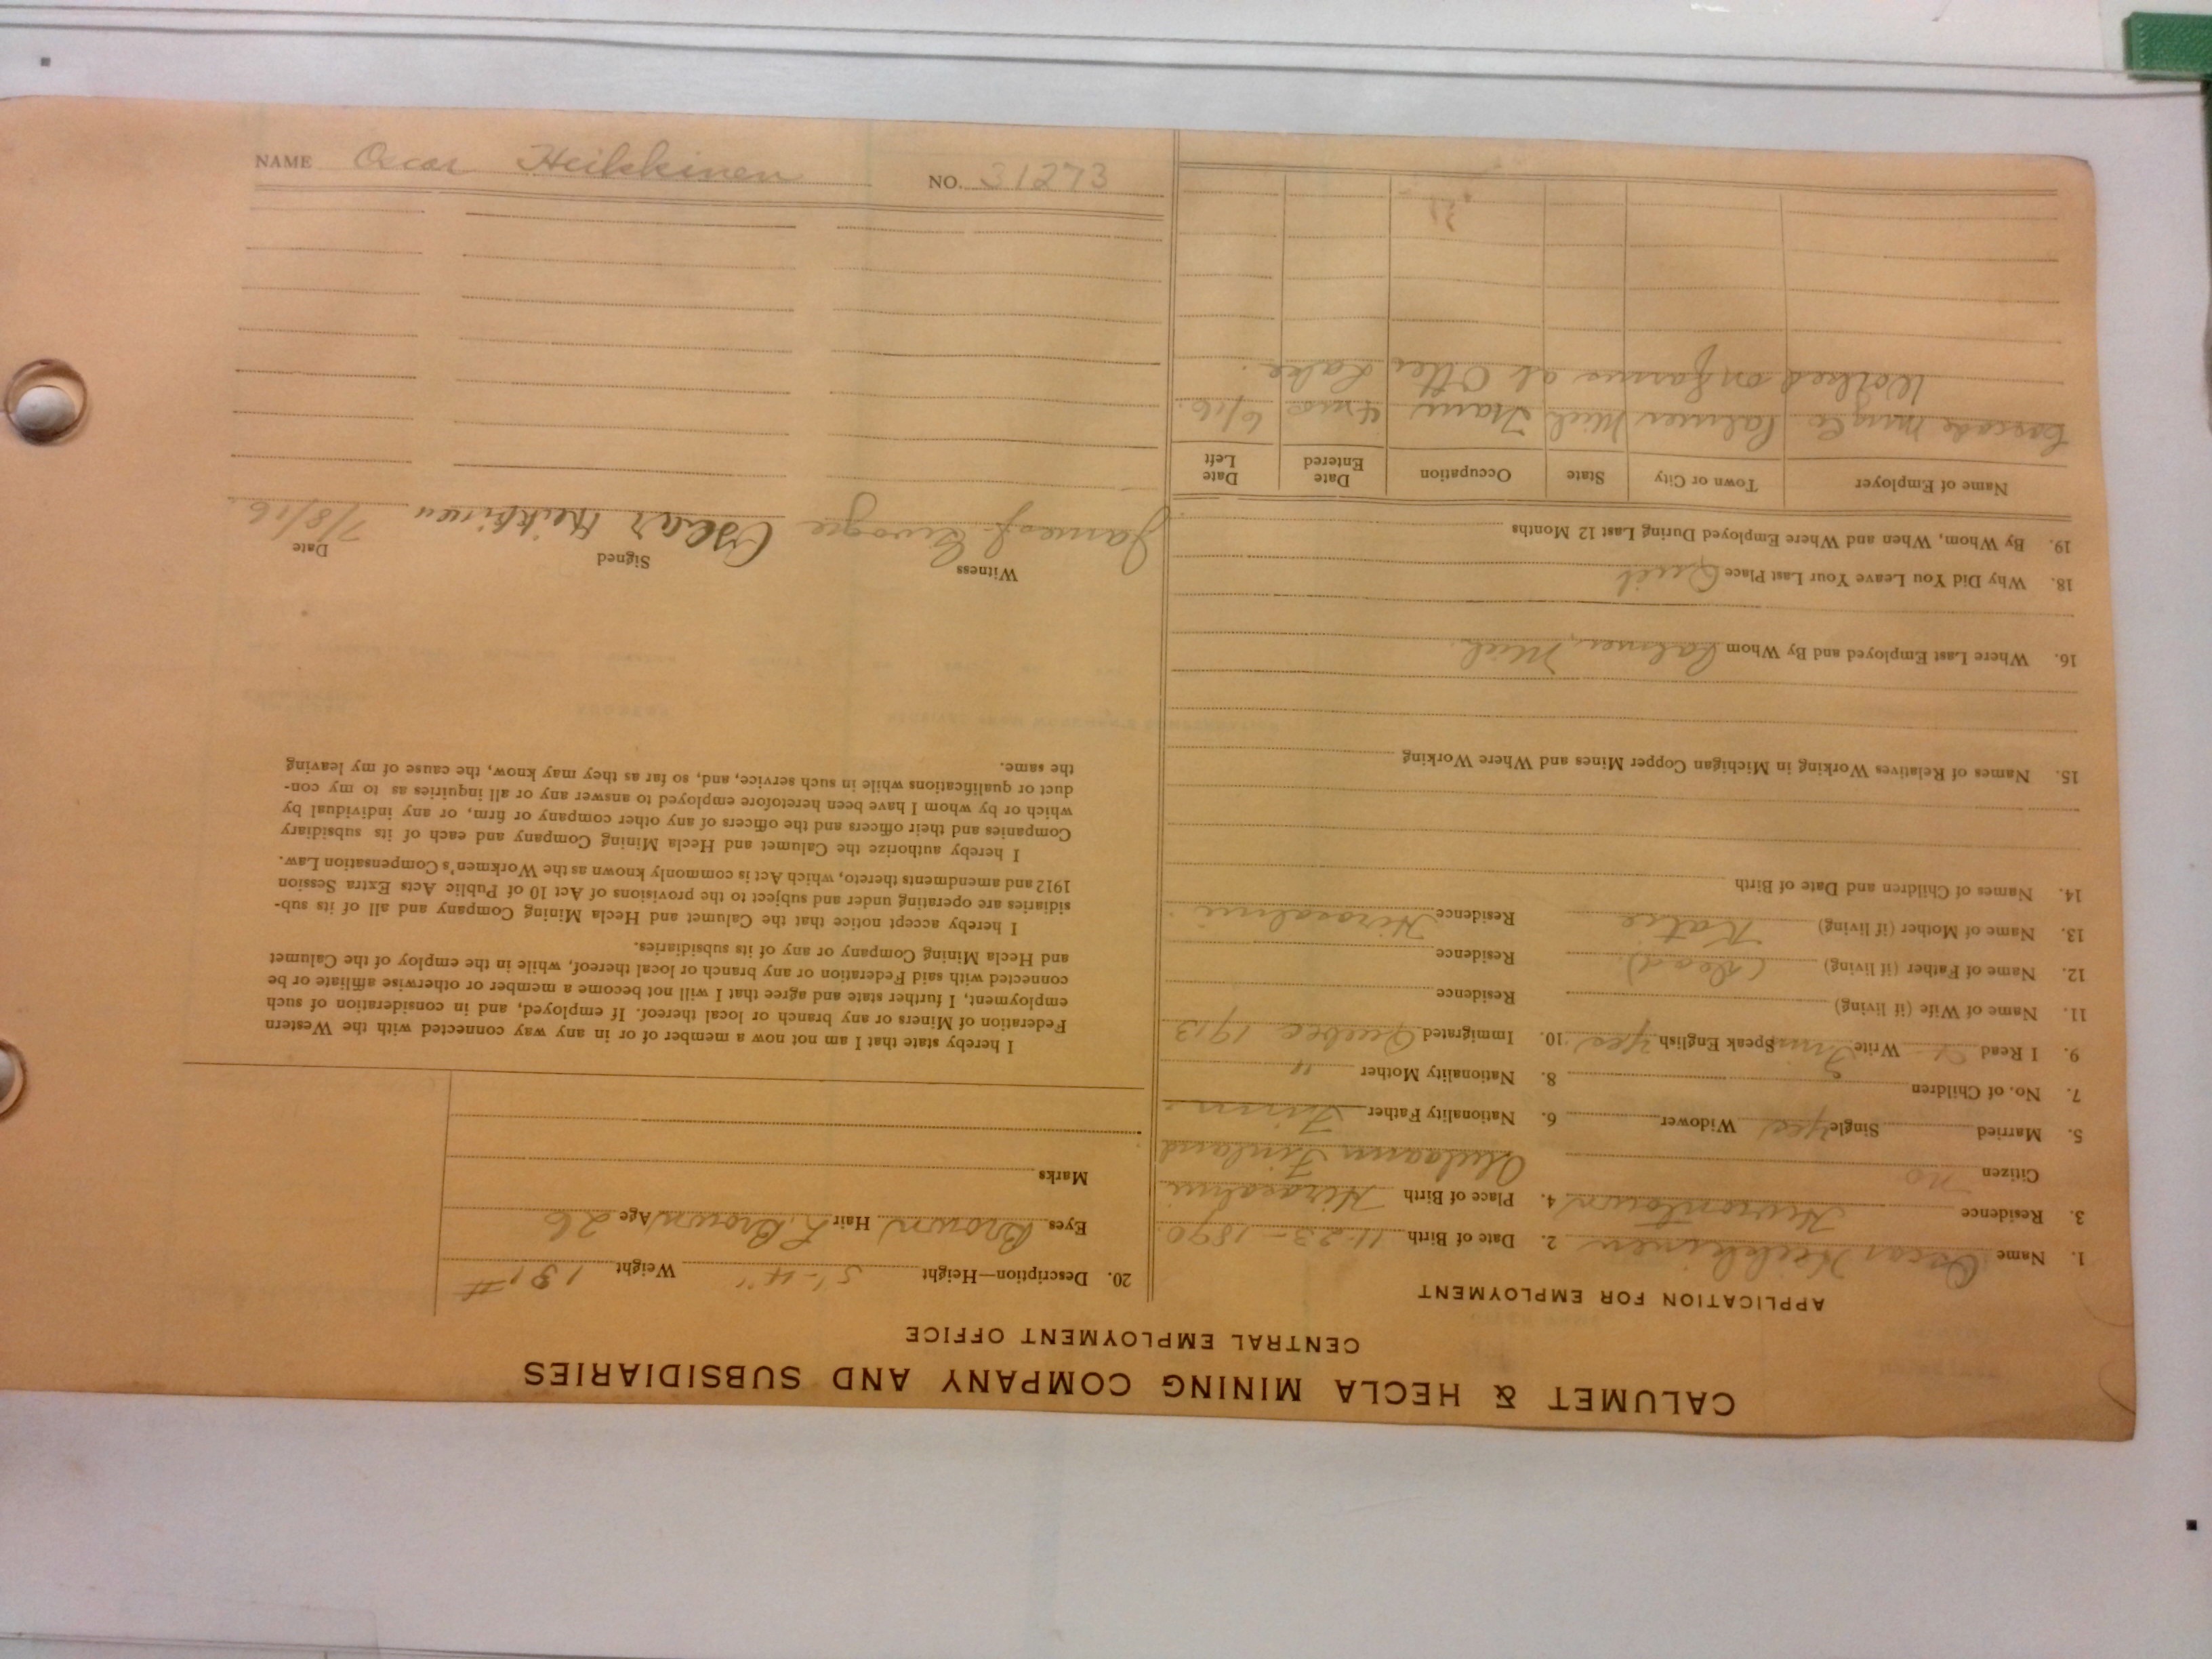 CALUMET & HECLA MINING COMPANY AND SUBSIDIARIES
CENTRAL EMPLOYMENT OFFICE
APPLICATION FOR EMPLOYMENT
1. Name Oscar Heikkinen 2. Date of Birth 11-23-1890
3. Residence Hurontown 4. Place of Birth
Citizen no Finland
5. Married Single Yes Widower 6. Nationality Father Finn.
7. No. of Children 8. Nationality Mother "
9. I Read Write Finn Speak English Yes 10. Immigrated Quebec 1913
11. Name of Wife (if living) Residence
12. Name of Father (if living) (Dead) Residence
13. Name of Mother (if living) Katie Residence
14. Names of Children and Date of Birth
15. Names of Relatives Working in Michigan Copper Mines and Where Working
16. Where Last Employed and By Whom Palmer, Mich.
18. Why Did You Leave Your Last Place Quit
19. By Whom, When and Where Employed During Last 12 Months
Name of Employer Town or City State Occupation Date Entered Date Left
Cascade Mng Co Palmer Mich Tram 4 mos 6/16.
Worked on farms at Otter Lake.
20. Description—Height 5'-4" Weight 131 #
Eyes Brown Hair L. Brown Age 26
Marks
I hereby state that I am not now a member of or in any way connected with the Western
Federation of Miners or any branch or local thereof. If employed, and in consideration of such
employment, I further state and agree that I will not become a member or otherwise affiliate or be
connected with said Federation or any branch or local thereof, while in the employ of the Calumet
and Hecla Mining Company or any of its subsidiaries.
I hereby accept notice that the Calumet and Hecla Mining Company and all of its sub-
sidiaries are operating under and subject to the provisions of Act 10 of Public Acts Extra Session
1912 and amendments thereto, which Act is commonly known as the Workmen's Compensation Law.
I hereby authorize the Calumet and Hecla Mining Company and each of its subsidiary
Companies and their officers and the officers of any other company or firm, or any individual by
which or by whom I have been heretofore employed to answer any or all inquiries as to my con-
duct or qualifications while in such service, and, so far as they may know, the cause of my leaving
the same.
Witness Signed Date
James Oscar Heikkinen 7/8/16.
NAME Oscar Heikkinen NO. 31273